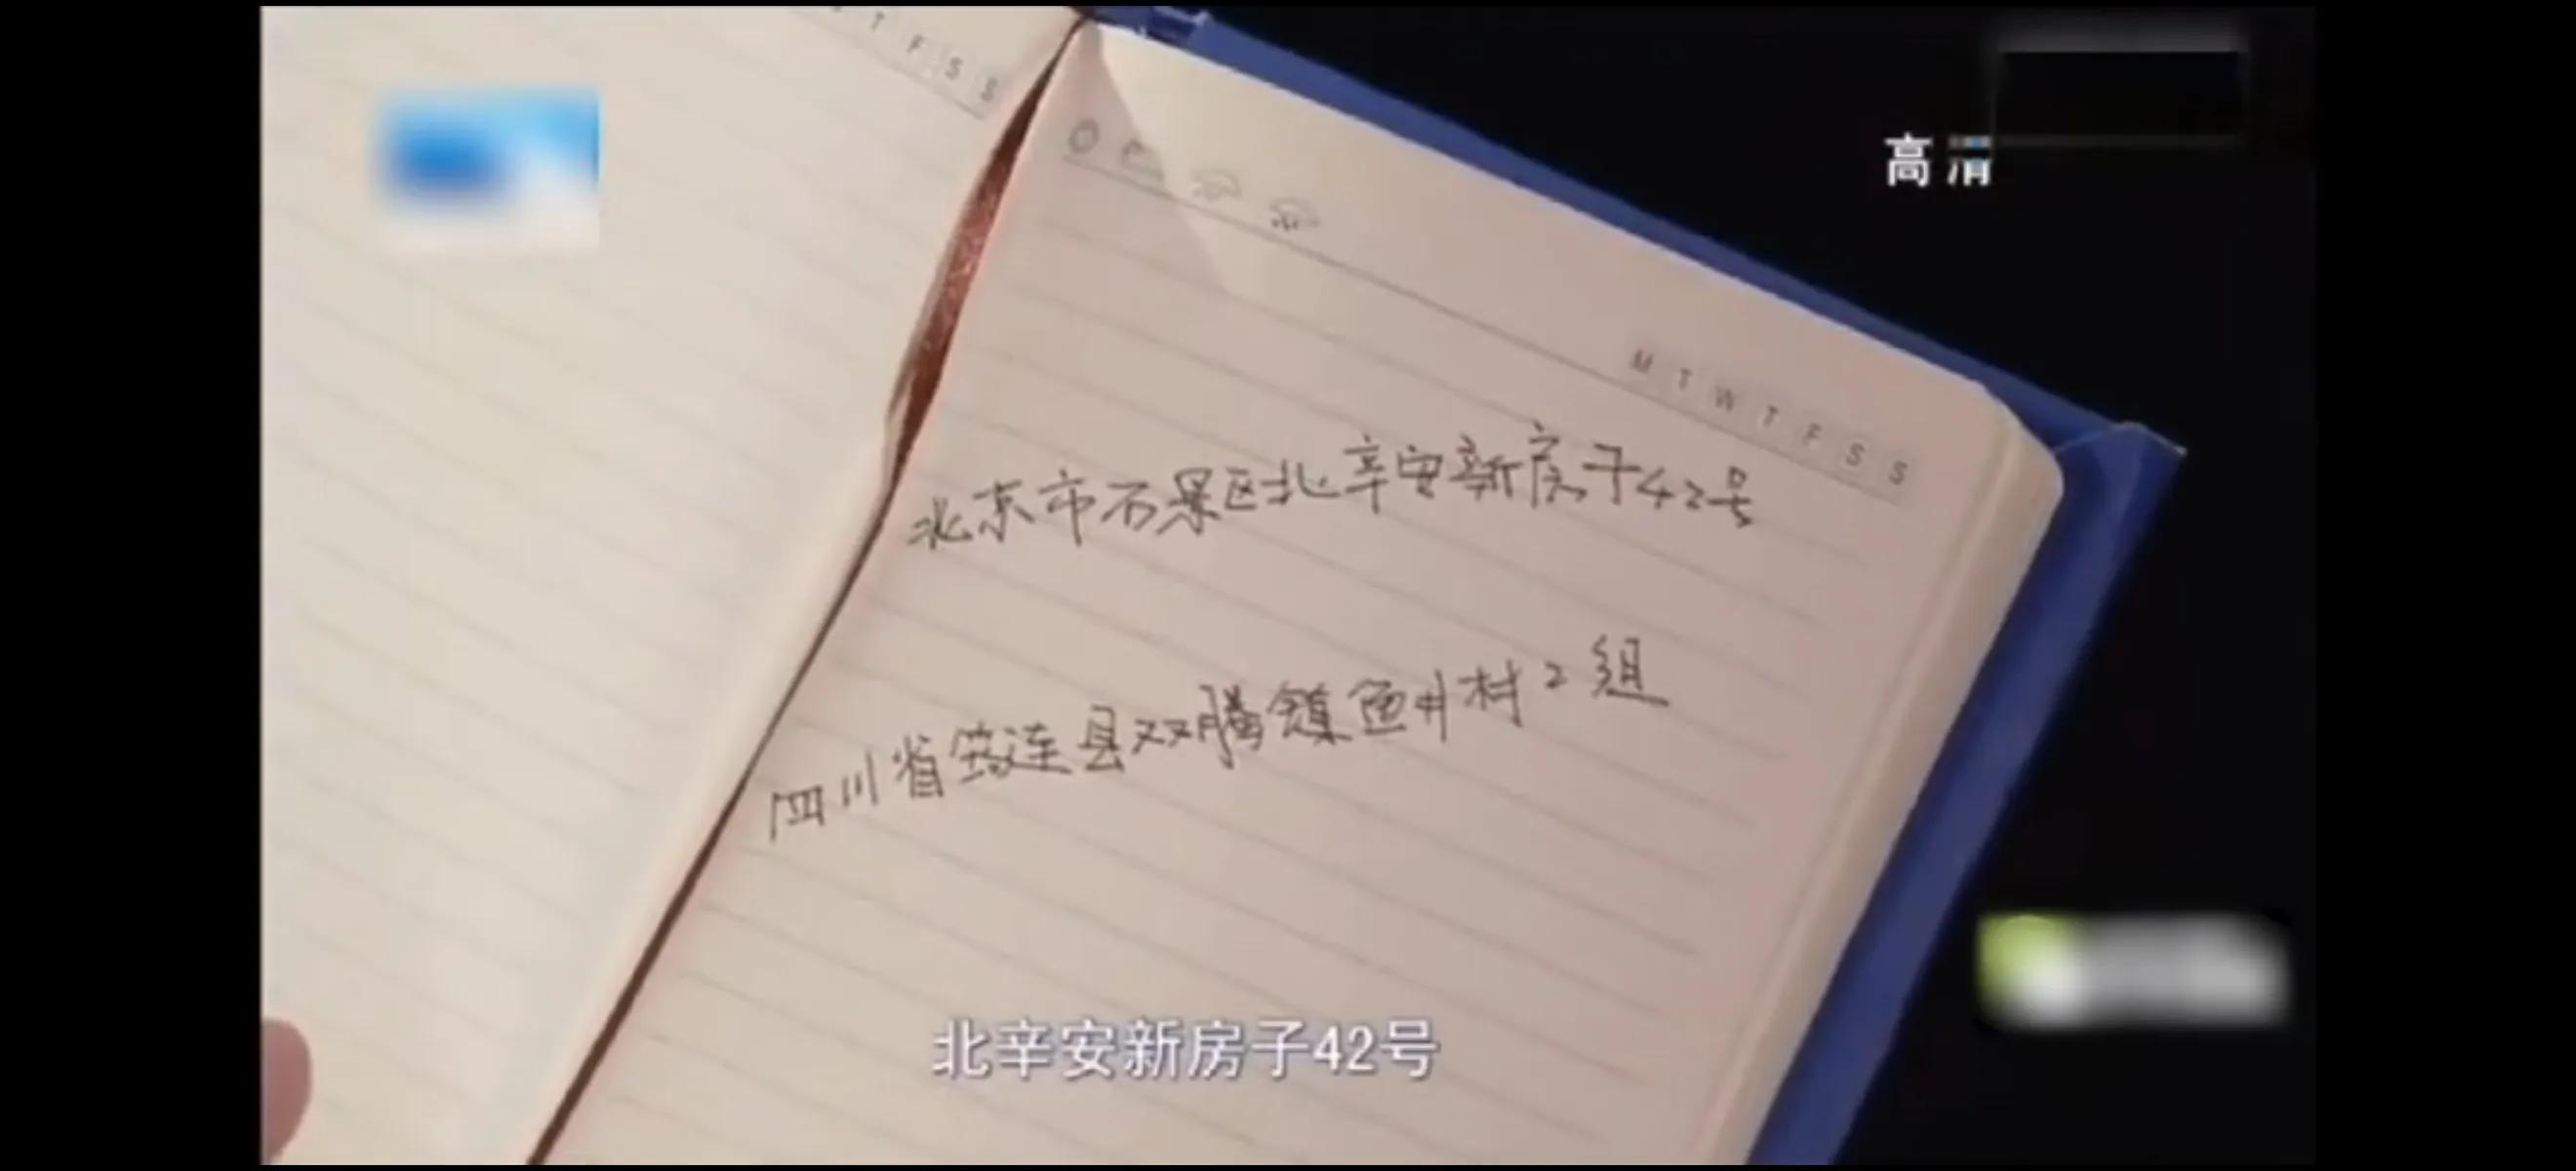 T F S S
高清
M T W T F S S
北京市石景区北辛安新房子42号
四川省筠连县双腾镇鱼井村2组
北辛安新房子42号